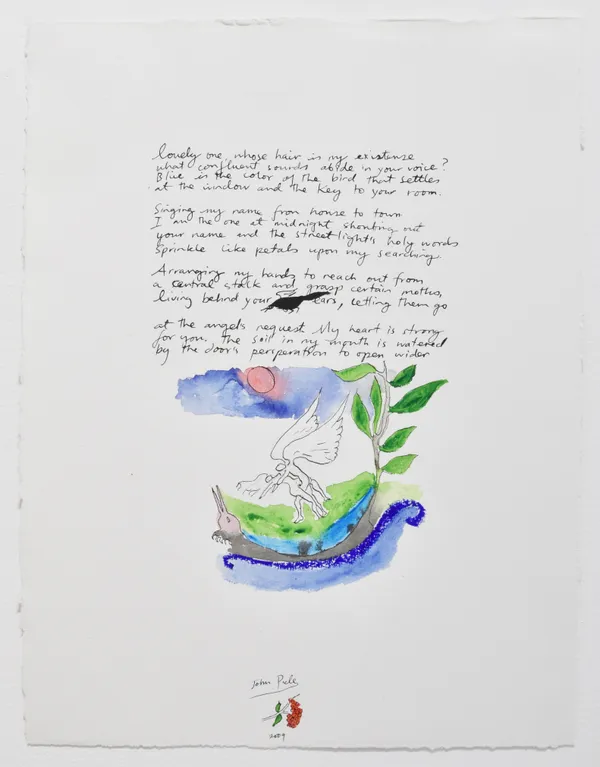 lovely one, whose hair is my existense
what confluent sounds abide in your voice?
Blue is the color of the bird that settles
at the window and the key to your room.
Singing my name from house to town
I am the one at midnight shouting out
your name and the streetlight's holy words
Sprinkle like petals upon my searching.
Arranging my hands to reach out from
a central stalk and grasp certain moths,
living behind your ears, letting them go
at the angels request. My heart is strong
for you. The soil in my mouth is watered
by the door's persperation to open wider
John Pule
2009